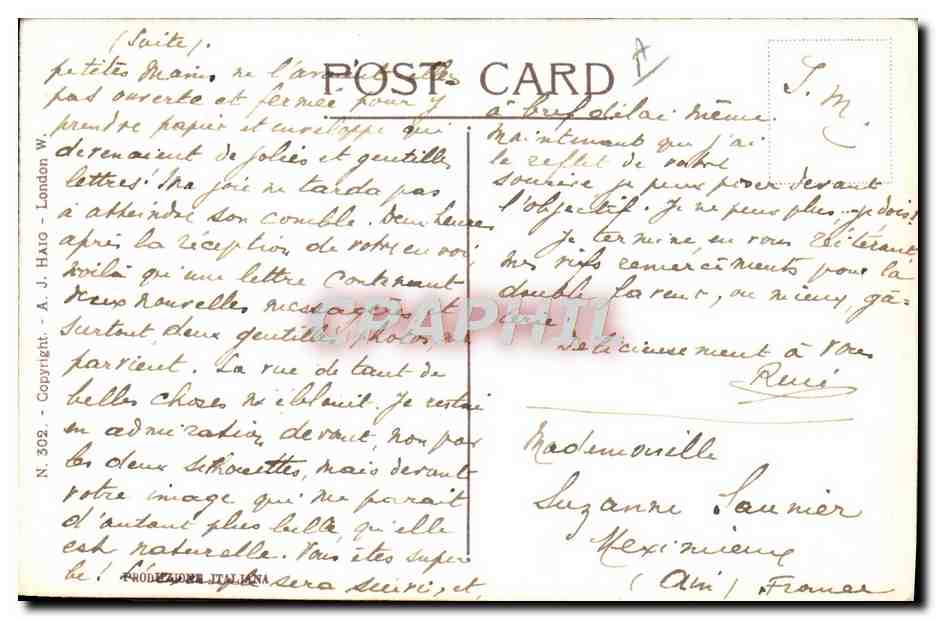 (Suite).
petites mains ne l'avaient elles
pas ouverte et fermée pour y
prendre papier et enveloppe qui
devenaient de jolies et gentilles
lettres! Ma joie ne tarda pas
à atteindre son comble. Deux heures
après la réception de votre envoi,
voilà qu'une lettre contenant
deux nouvelles messagères et
surtout, deux gentilles photos, me
parvient. La vue de tant de
belles choses m'éblouit. Je restai
en admiration devant, non pas
les deux silhouettes, mais devant
votre image qui me parait
d'autant plus belle, qu'elle
est naturelle. Vous êtes super-
be! sera suivi, et,
POST CARD
à bref délai même.
Maintenant que j'ai
le reflet de votre
sourire je peux poser devant
l'objectif. Je ne peux plus... je dois!
Je termine en vous réitérant
mes vifs remerciements pour la
double faveur, ou mieux, gâ-
terie.
Délicieusement à vous
René
Mademoiselle
Suzanne Saunier
Meximieux
(Ain) France
S. M.
N. 302. - Copyright. - A. J. HAIG - London W.
PRODUZIONE ITALIANA
CPAPHIL